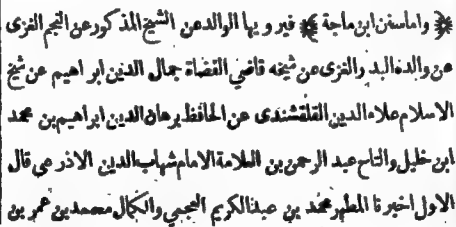 ﴿ واماسنن ابن ماجة ﴾ فيرويها الوالد عن الشيخ المذكور عن النجم الغزى
عن والده البدر والغزى عن شيخه قاضي القضاة جمال الدين ابراهيم عن شيخ
الاسلام علاء الدين القلقشندى عن الحافظ برهان الدين ابراهيم بن محمد
ابن خليل والتاج عبد الرحمن بن العلامة الامام شهاب الدين الاذرعى قال
الاول اخبرنا المطهر محمد بن عبد الكريم العجمي والكمال محمد بن عمر بن